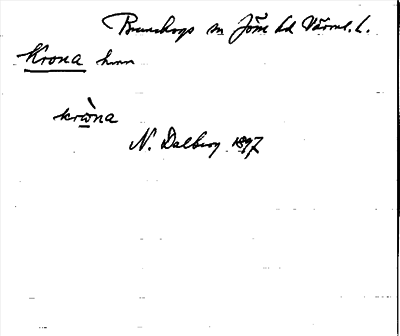 Brunskogs sn Jösse hd Värml. l.
Krona hmn
krὼna
N. Dalberg 1897